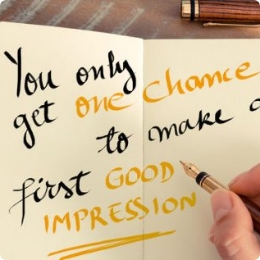 You only
get one chance
to make a
first GOOD
IMPRESSION